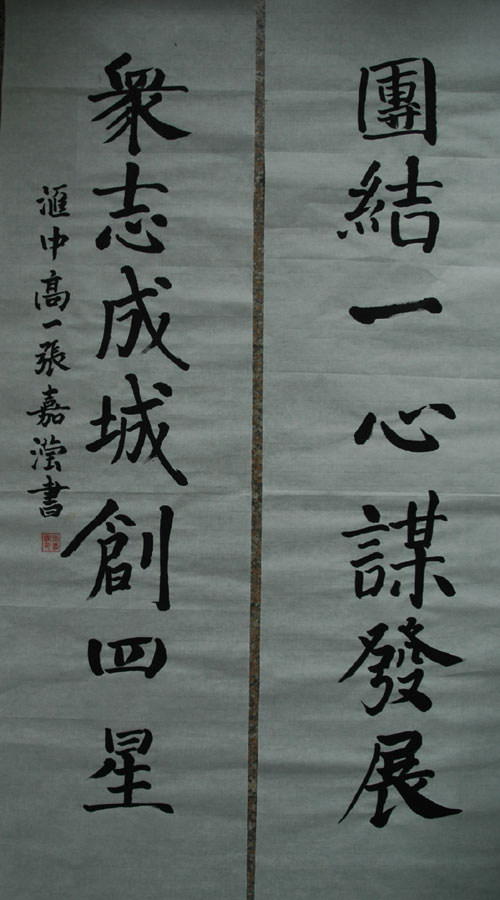 團結一心謀發展
衆志成城創四星
滙中高一張嘉瀅書